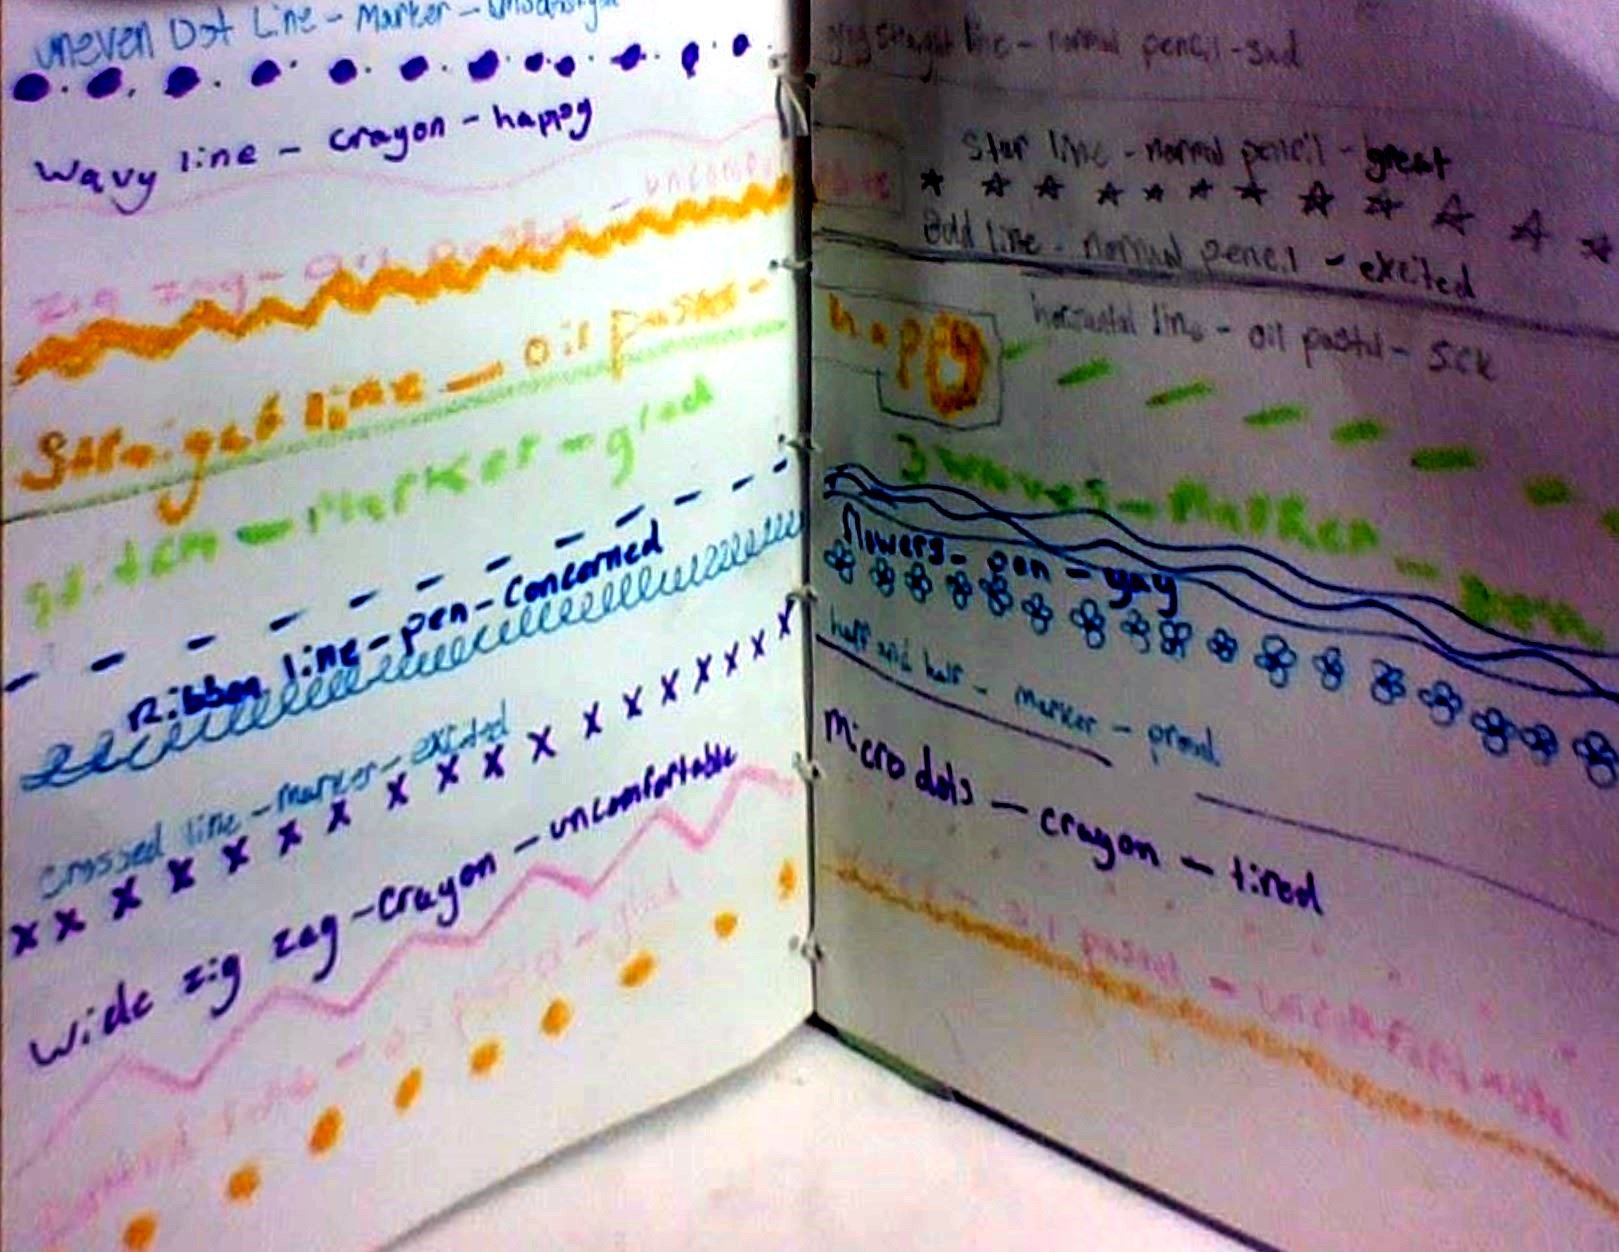 uneven Dot Line - Marker -
wavy line - crayon - happy
zig zag - oil pastel - uncomfortable
Straight line - oil pastel -
happy
Marker - glad
Ribbon line - pen - concerned
crossed line - marker - excited
wide zig zag - crayon - uncomfortable
- glad
straight line - normal pencil - sad
Star line - normal pencil - great
Bold line - normal pencil - excited
horizontal line - oil pastel - sick
3 waves - Marker -
flowers - pen - yay
half and half - marker - proud
Micro dots - crayon - tired
- oil pastel - uncomfortable